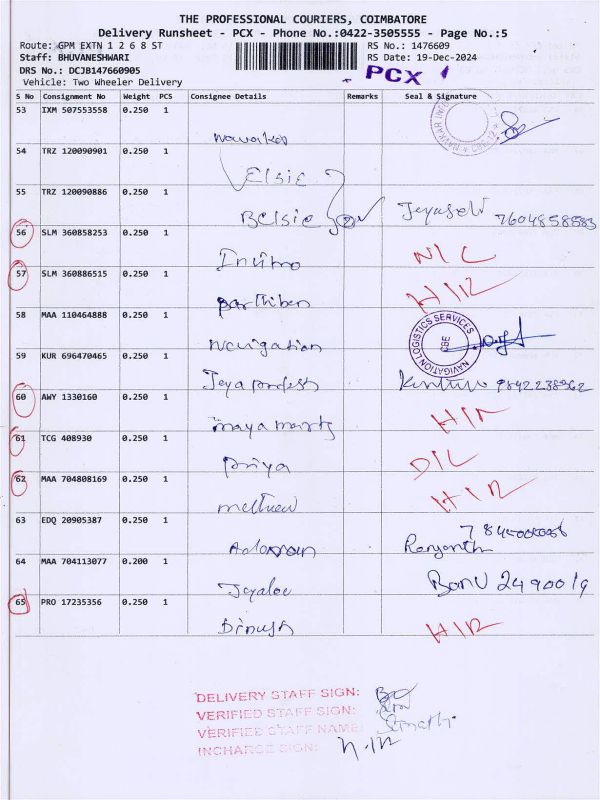 THE PROFESSIONAL COURIERS, COIMBATORE
Delivery Runsheet - PCX - Phone No.:0422-3505555 - Page No.:5
Route: GPM EXTN 1 2 6 8 ST RS No.: 1476609
Staff: BHUVANESHWARI RS Date: 19-Dec-2024
DRS No.: DCJB147660905 PCX 1
Vehicle: Two Wheeler Delivery
S No Consignment No Weight PCS Consignee Details Remarks Seal & Signature
53 IXM 507553558 0.250 1
54 TRZ 120090901 0.250 1
Elsie
55 TRZ 120090886 0.250 1
Belsie 7604858583
56 SLM 360858253 0.250 1
57 SLM 360886515 0.250 1
Parthiban
58 MAA 110464888 0.250 1
Navigation NAVIGATION LOGISTICS SERVICES CBE
59 KUR 696470465 0.250 1
Jeya pradesh 9842238962
60 AWY 1330160 0.250 1
61 TCG 408930 0.250 1
Priya
62 MAA 704808169 0.250 1
63 EDQ 20905387 0.250 1
64 MAA 704113077 0.200 1
Banu 2490019
65 PRO 17235356 0.250 1
DELIVERY STAFF SIGN:
VERIFIED STAFF SIGN:
VERIFIED STAFF NAME:
INCHARGE SIGN: